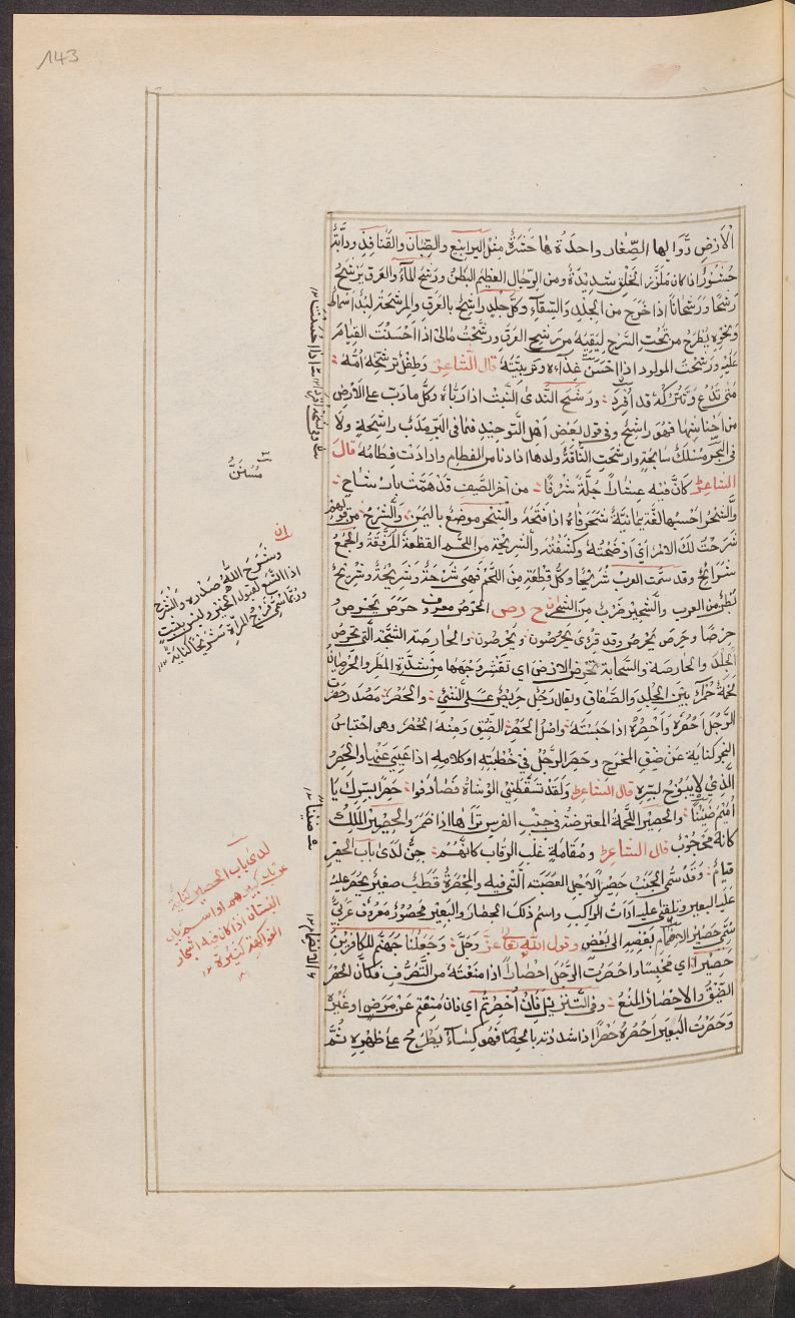 143
الأرض دوابها الصغار واحدة ها حشرة مثل اليرابيع والضباب والقنافذ ودابة
حشور اذا كان ملزز الخلق شديدة ومن الرجال العظيم البطن ورشح الماء والعرق يرشح
رشحا ورشحانا اذا خرج من الجلد والسقاء وكل جلد راشح بالعرق والمرشحة لبد اسماط
ونحوه يطرح من تحت السرج ليقيه من رشيح العرق ورشحت مالى اذا احسنت القيام
عليه ورشحت المولود اذا احسن غذاءه وتربيته قال الشاعر وطفل ترشحه امه
متى تدع وتترك له قد افرد ورشح الندى النبت اذا رباه وكل ما دب على الأرض
من اخناشها فهو راشح وفى قول بعض اهل التوحيد فما فى البر مدب راشحة ولا
فى البحر مسلك سابحة وارشحت الناقة ولدها اذا دنا من الفطام وارادت فطامه قال
الشاعر كأن فيه عشارا جلة شرفا من آخر الصيف قد همت بارشاح
والشحر احسبها لغة يمانية شحر فاه اذا فتحه والشحر موضع باليمن والشرح من قولهم
شرحت لك الامر أى اوضحته وكشفته والشريحة من اللحم القطعة المرققة والجمع
شرائح وقد سمت العرب شريحا وكل قطعة من اللحم فهى شرحة وشريحة وشريح
بطن من العرب والشحير ضرب من الشجر ح ر ص الحرص معروف حرص يحرص
حرصا وحرص يحرص وقد قرئ يحرصون ويحرصون والحارصة الشجة التى تحرص
الجلد والحارصة السحابة تحرص الارض اى تقشر وجهها من شدة المطر والحرصيان
لحمة حمراء بين الجلد والصفاق ويقال رجل حريص على الشئ والحصر مصدر حصرت
الرجل احصره واحصره اذا حبسته واصل الحصر الضيق ومنه الحصر وهى احتباس
النجو كناية عن ضيق المخرج وحصر الرجل فى خطبته او كلامه اذا عيى عنها والحصر
الذى لا يبوح لسره قال الشاعر ولقد تسقطنى الوشاة فصادفوا حصرا بسرك يا
اميم ضنينا والحصير اللحمة المعترضة فى جنب الفرس تراها اذا ضمر والحصير الملك
كأنه محجوب قال الشاعر ومقامة غلب الرقاب كأنهم جن لدى باب الحصير
قيام وقد سمى الجنب حصيرا لاجل العصبة التى فيه والمحصرة قطب صغير يحصر على
على البعير ويلقى عليه ادات الراكب واسم ذلك الحصار والبعير محصور معروف عربى
سمى حصيرا لانضمام بعضه الى بعض وقول الله تعالى عز وجل وجعلنا جهنم للكافرين
حصيرا اى محبسا واحصرت الرجل احصارا اذا منعته من التصرف فكأن الحصر
الضيق والاحصار المنع وفى التنزيل فان احصرتم اى فان منعتم عن مرض او غيره
وحصرت البعير احصره حصرا اذا شددته بالحصار فهو كساء يطرح على ظهره ثم
اذا احسنت
مسلك
وشرح الله صدره والشرح
اذا اتسع لقبول الخير وليس بثبت
وربما سمى فرج المرأة شريحا كناية
ضنينا
لدى باب الحصير كناية
البستان اذا كان فيه اشجار
الفواكه كثيرة